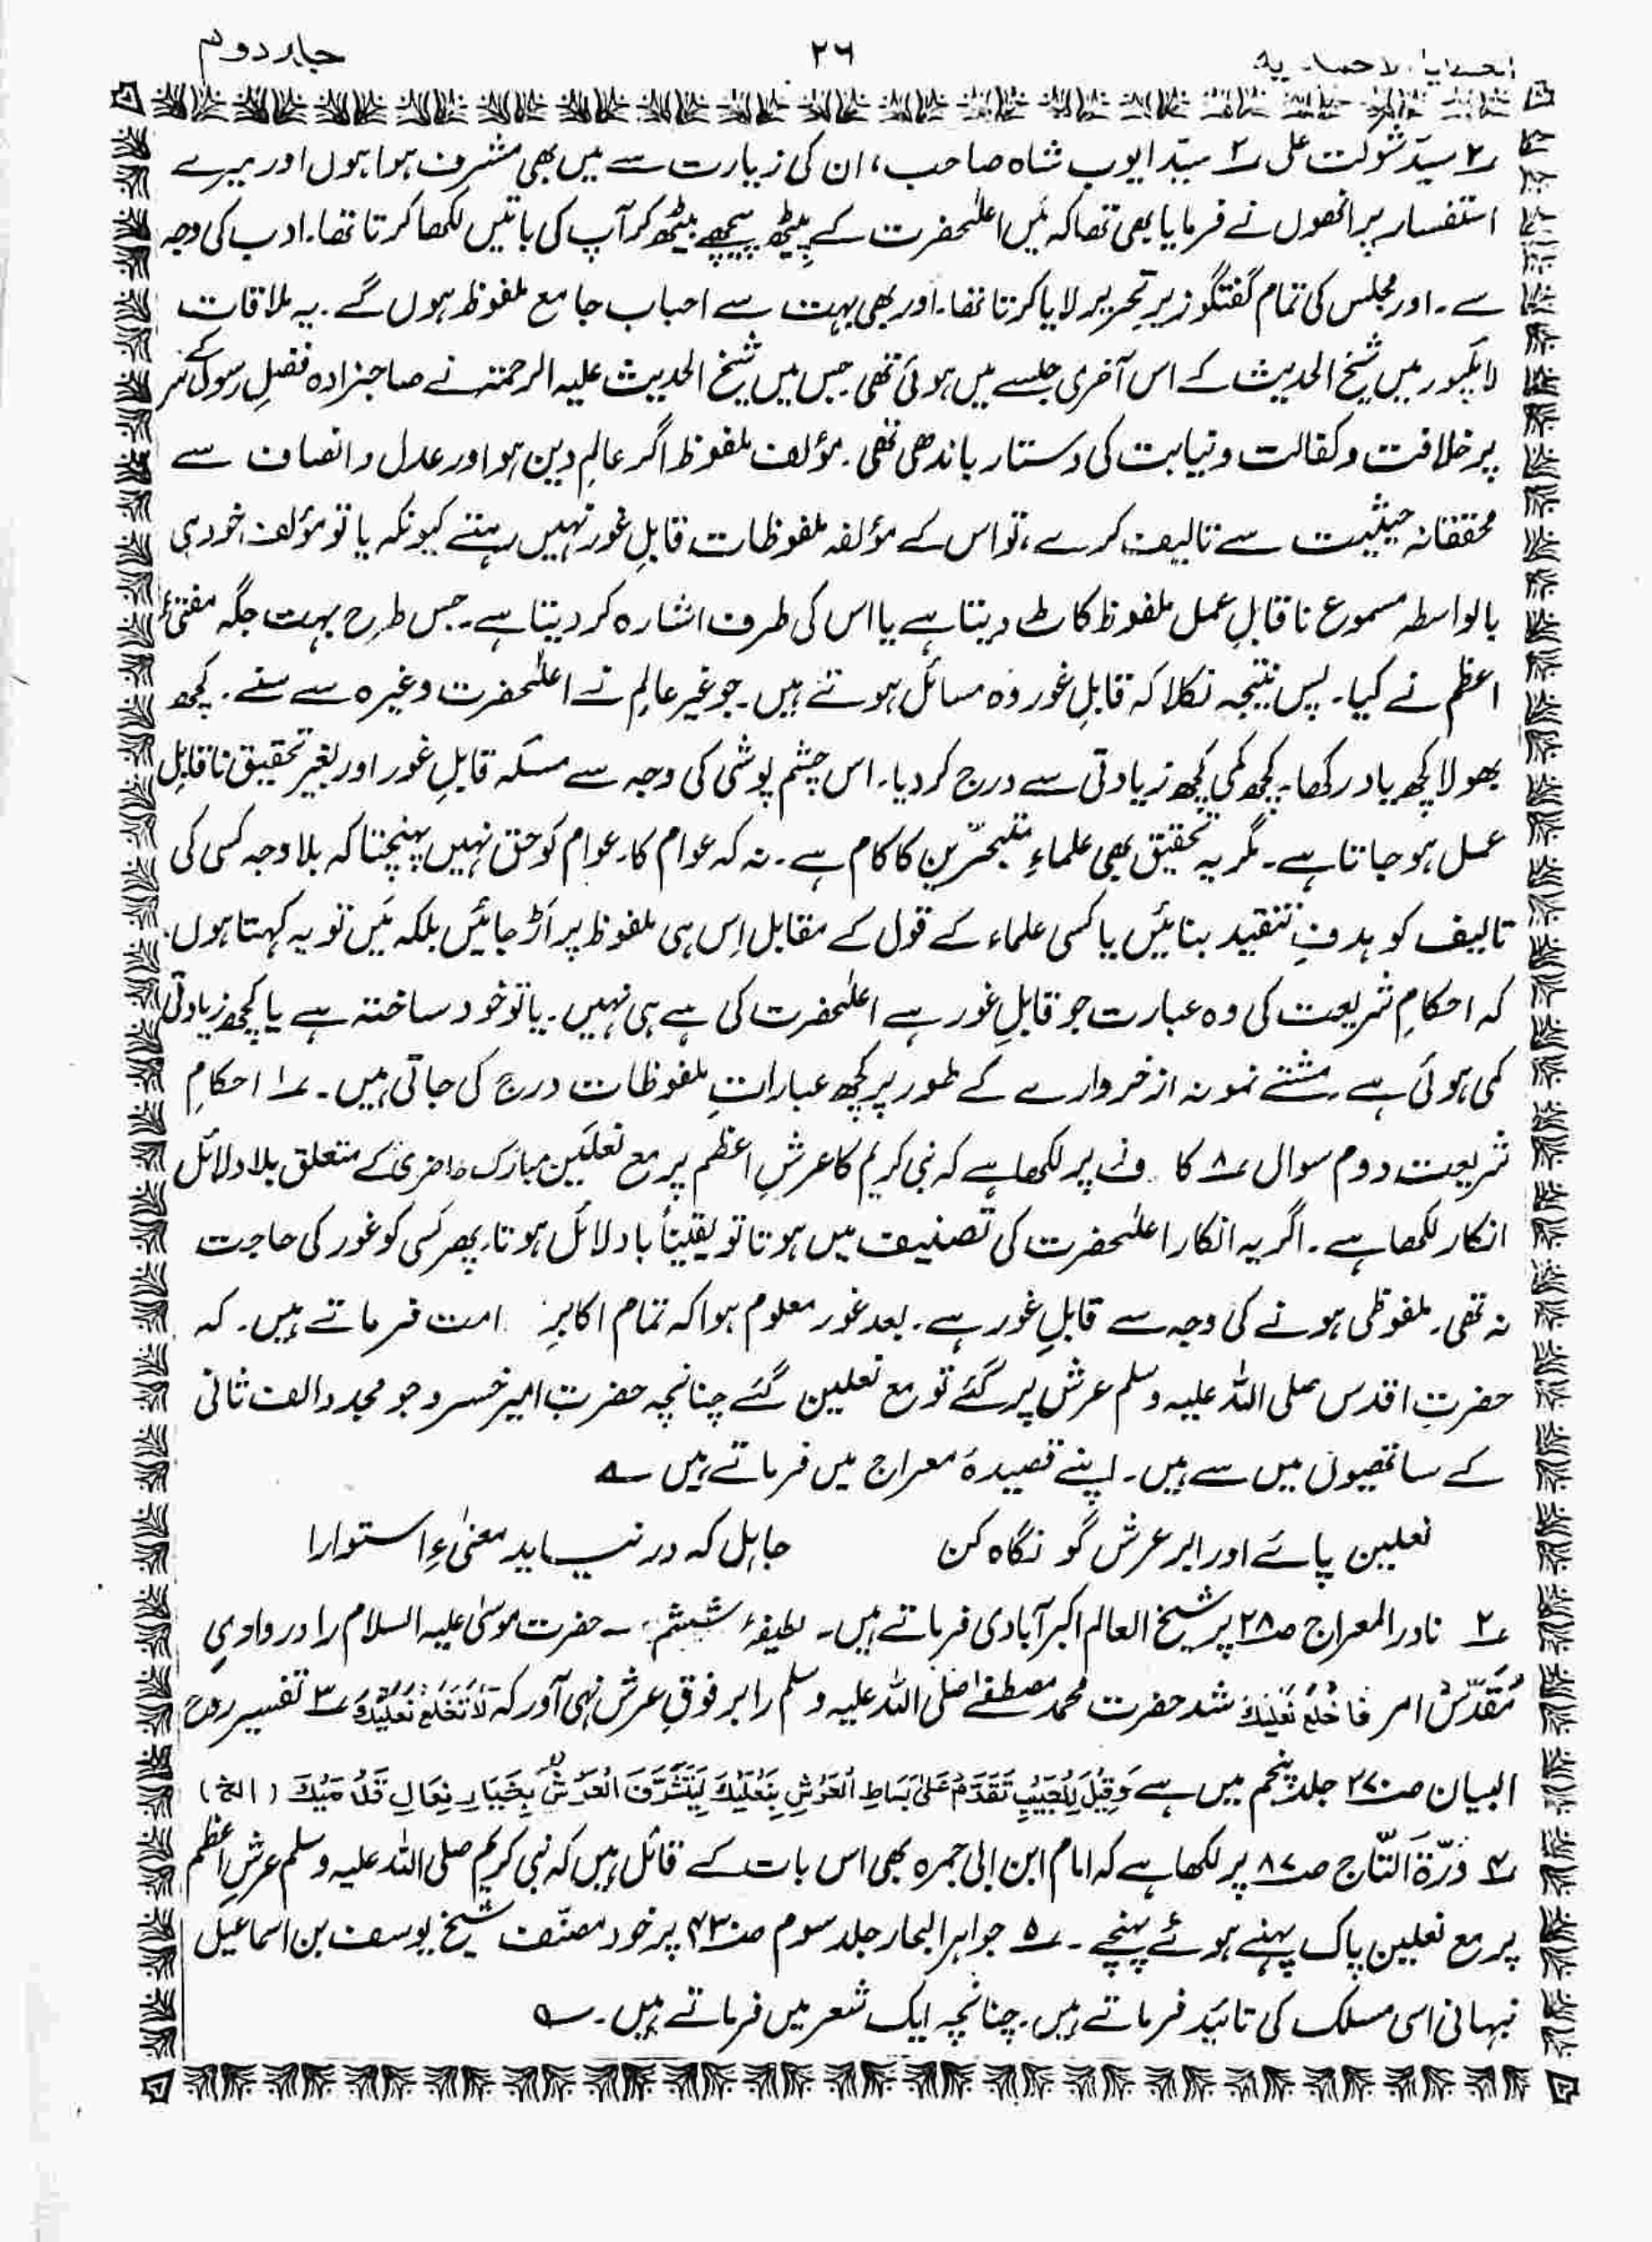 العطایا الاحمدیہ ۲۶ جلد دوم
۲؎ سیّد شوکت علی ۳؎ سیّد ایوب شاہ صاحب، ان کی زیارت سے میں بھی مشرف ہوا ہوں اور میرے
استفسار پر انھوں نے فرمایا بھی تھا کہ مَیں اعلٰحضرت کے پیٹھ پیچھے بیٹھ کر آپ کی باتیں لکھا کرتا تھا۔ ادب کی وجہ
سے۔ اور مجلس کی تمام گفتگو زیرِ تحریر لایا کرتا تھا۔ اور بھی بہت سے احباب جامع ملفوظ ہوں گے۔ یہ ملاقات
لائلپور میں شیخ الحدیث کے اس آخری جلسے میں ہوئی تھی جس میں شیخ الحدیث علیہ الرحمتہ نے صاحبزادہ فضلِ رسول کے سر
پر خلافت وکفالت ونیابت کی دستار باندھی تھی۔ مؤلف ملفوظ اگر عالمِ دین ہو اور عدل وانصاف سے
محققانہ حیثیت سے تالیف کرے، تو اس کے مؤلفہ ملفوظات قابلِ غور نہیں رہتے کیونکہ یا تو مؤلف خود ہی
بالواسطہ مسموع ناقابلِ عمل ملفوظ کاٹ دیتا ہے یا اس کی طرف اشارہ کر دیتا ہے۔ جس طرح بہت جگہ مفتئ
اعظم نے کیا۔ پس نتیجہ نکلا کہ قابلِ غور وہ مسائل ہوتے ہیں۔ جو غیر عالِم نے اعلٰحضرت وغیرہ سے سنے۔ کچھ
بھولا کچھ یاد رکھا۔ کچھ کمی کچھ زیادتی سے درج کر دیا۔ اس چشم پوشی کی وجہ سے مسئلہ قابلِ غور اور بغیر تحقیق ناقابلِ
عمل ہو جاتا ہے۔ مگر یہ تحقیق بھی علماءِ متبحرّین کا کام ہے۔ نہ کہ عوام کا۔ عوام کو حق نہیں پہنچتا کہ بلاوجہ کسی کی
تالیف کو ہدفِ تنقید بنائیں یا کسی علماء کے قول کے مقابل اِس ہی ملفوظ پر اَڑ جائیں بلکہ مَیں تو یہ کہتا ہوں
کہ احکامِ شریعت کی وہ عبارت جو قابلِ غور ہے اعلٰحضرت کی ہے ہی نہیں۔ یا تو خود ساختہ ہے یا کچھ زیادتی
کمی ہوئی ہے۔ مشتے نمونہ از خروارے کے طور پر کچھ عباراتِ ملفوظات درج کی جاتی ہیں۔ ۱؎ احکامِ
شریعت دوم سوال ۸؎ کا پر لکھا ہے کہ نبی کریم کا عرشِ اعظم پر مع نعلَین مبارک حاضری کے متعلق بلا دلائل
انکار لکھا ہے۔ اگر یہ انکار اعلٰحضرت کی تصنیف میں ہوتا تو یقیناً بادلائل ہوتا۔ پھر کسی کو غور کی حاجت
نہ تھی۔ ملفوظی ہونے کی وجہ سے قابلِ غور ہے۔ بعد غور معلوم ہوا کہ تمام اکابرِ امت فرماتے ہیں۔ کہ
حضرتِ اقدس صلی اللہ علیہ وسلم عرش پر گئے تو مع نعلین گئے چنانچہ حضرت امیر خسرو جو مجدد الف ثانی
کے ساتھیوں میں سے ہیں۔ اپنے قصیدۂ معراج میں فرماتے ہیں ؎
نعلین پائے اورا برعرش گو نگاہ کن جاہل کہ در نیابد معنیٰءِ استوارا
۲؎ نادر المعراج صـ۲۸ پر شیخ العالم اکبرآبادی فرماتے ہیں۔ لطیفۂ ششم ؎ حضرت موسیٰ علیہ السلام را در وادیِ
مُقَدَّس امر فَاخْلَعْ نَعْلَيْكَ شد حضرت محمد مصطفےٰ صلی اللہ علیہ وسلم را بر فوقِ عرش نہی آور کہ لَا تَخْلَعْ نَعْلَيْكَ ۳؎ تفسیر روح
البیان صـ۲۷۰ جلد پنجم میں ہے وَقِيْلَ لِلْحَبِيْبِ تَقَدَّمْ عَلٰی بَسَاطِ الْعَرْشِ بِنَعْلَيْكَ لِيَتَشَرَّفَ الْعَرْشُ بِغُبَارِ نِعَالِ قَدَمَيْكَ (الخ)
۴؎ دُرّۃُ التّاج صـ۸۷ پر لکھا ہے کہ امام ابن ابی جمرہ بھی اس بات کے قائل ہیں کہ نبی کریم صلی اللہ علیہ وسلم عرشِ اعظم
پر مع نعلین پاک پہنے ہوئے پہنچے۔ ۵؎ جواہر البحار جلد سوم صـ۴۳۰ پر خود مصنّف شیخ یوسف بن اسماعیل
نبہانی اسی مسلک کی تائید فرماتے ہیں۔ چنانچہ ایک شعر میں فرماتے ہیں۔ ؎